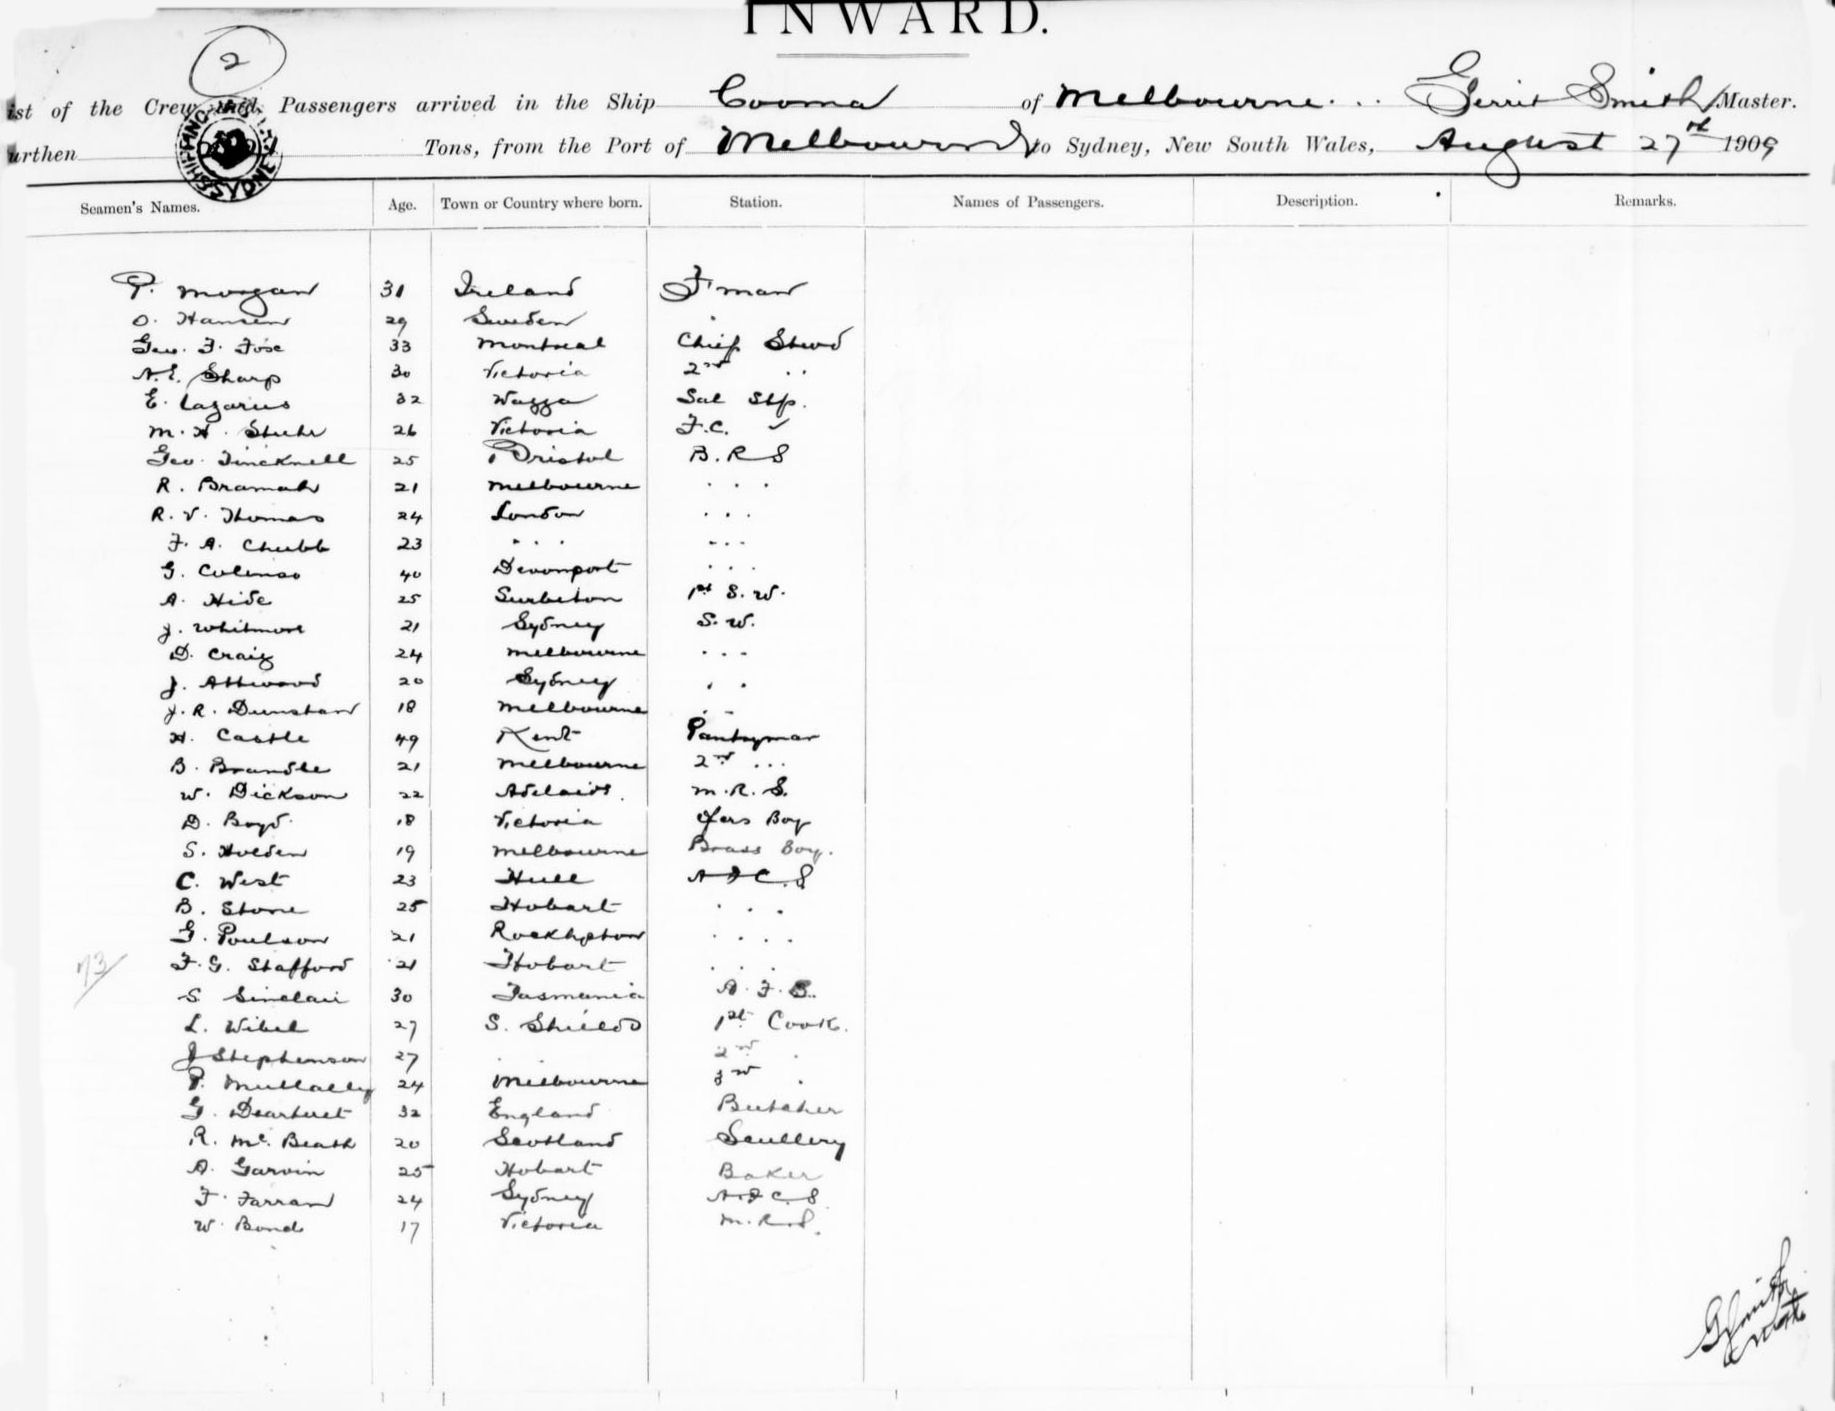 INWARD.
2
ist of the Crew and Passengers arrived in the Ship Cooma of Melbourne Gerrit Smith Master.
urthen Tons, from the Port of Melbourne to Sydney, New South Wales, August 27th 1909
SHIPPING SYDNEY
Seamen's Names. Age. Town or Country where born. Station. Names of Passengers. Description. Remarks.
P. Morgan 31 Ireland F'man
O. Hansen 29 Sweden "
Geo. F. Fose 33 Montreal Chief Stwd
A.E. Sharp 30 Victoria 2nd "
E. Lazarus 32 Wagga Sal Stp.
M. H. Stuhr 26 Victoria F.C. ✓
Geo. Tincknell 25 Bristol B.R S
R. Bramah 21 Melbourne . . .
R. V. Thomas 24 London . . .
F. A. Chubb 23 . . . . . .
G. Colenso 40 Devonport . . .
A. Hide 25 Surbiton 1st S.W.
J. Whitmore 21 Sydney S.W.
D. Craig 24 Melbourne . . .
J. Attwood 20 Sydney . .
J. R. Dunstan 18 Melbourne . .
H. Castle 49 Kent Pantryman
B. Brandle 21 Melbourne 2nd ...
W. Dickson 22 Adelaide. M.R.S.
D. Boyd 18 Victoria Ofers Boy
S. Holden 19 Melbourne Brass Boy.
C. West 23 Hull A F C.S
B. Stone 25 Hobart . . .
G. Poulson 21 Rockhpton . . . .
F. G. Stafford 21 Hobart . . .
73
S Sinclair 30 Tasmania A. F. S.
L. Wibel 27 S. Shields 1st Cook.
J Stephenson 27 . . 2nd .
P. Mullally 24 Melbourne 3rd .
G. Dearhurst 32 England Butcher
R. McBeath 20 Scotland Scullery
A. Garvin 25 Hobart Baker
F. Farran 24 Sydney A.F C.S.
W. Bond 17 Victoria M.R.S.
G Smith
Master